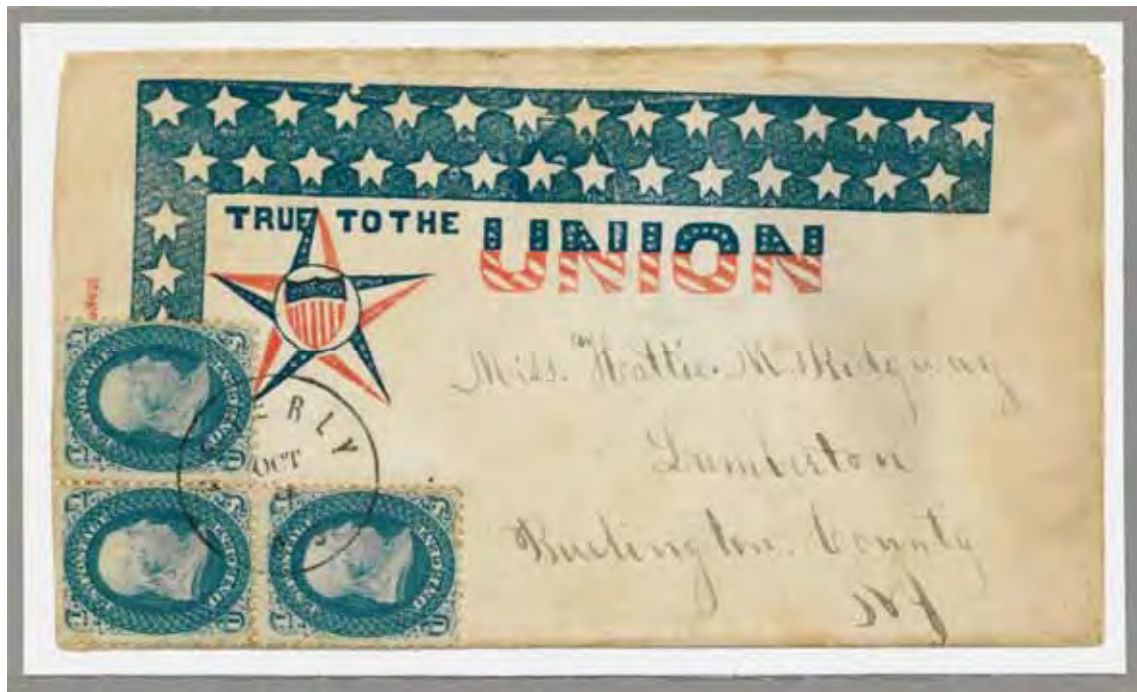 TRUE TO THE UNION
ERLY
OCT
Miss. Hattie. M. Ridgway
Lumberton
Burlington. County
NJ